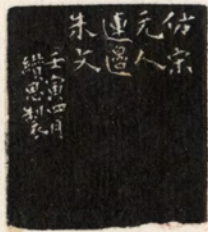 仿宋
元人
連邊
朱文
壬寅四月
製